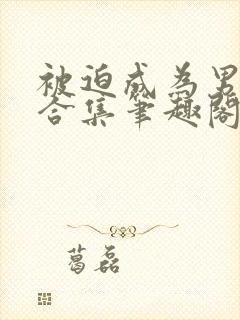 被迫成为男
合集笔趣阁
葛磊